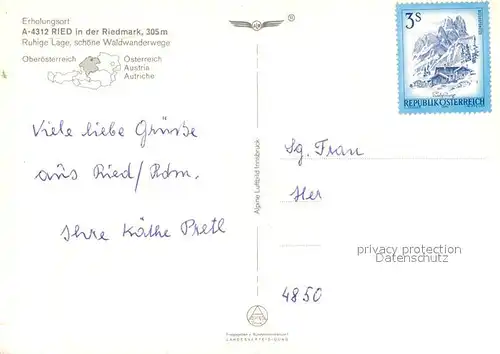 Erholungsort
A-4312 RIED in der Riedmark, 305m
Ruhige Lage, schöne Waldwanderwege
Oberösterreich
Österreich
Austria
Autriche
Viele liebe Grüße
aus Ried/Rdm.
Ihre Käthe Pretl
Alpine Luftbild Innsbruck
3 S
REPUBLIK ÖSTERREICH
Sg. Frau
Her
privacy protection
Datenschutz
4850
LANDESVERTEIDIGUNG